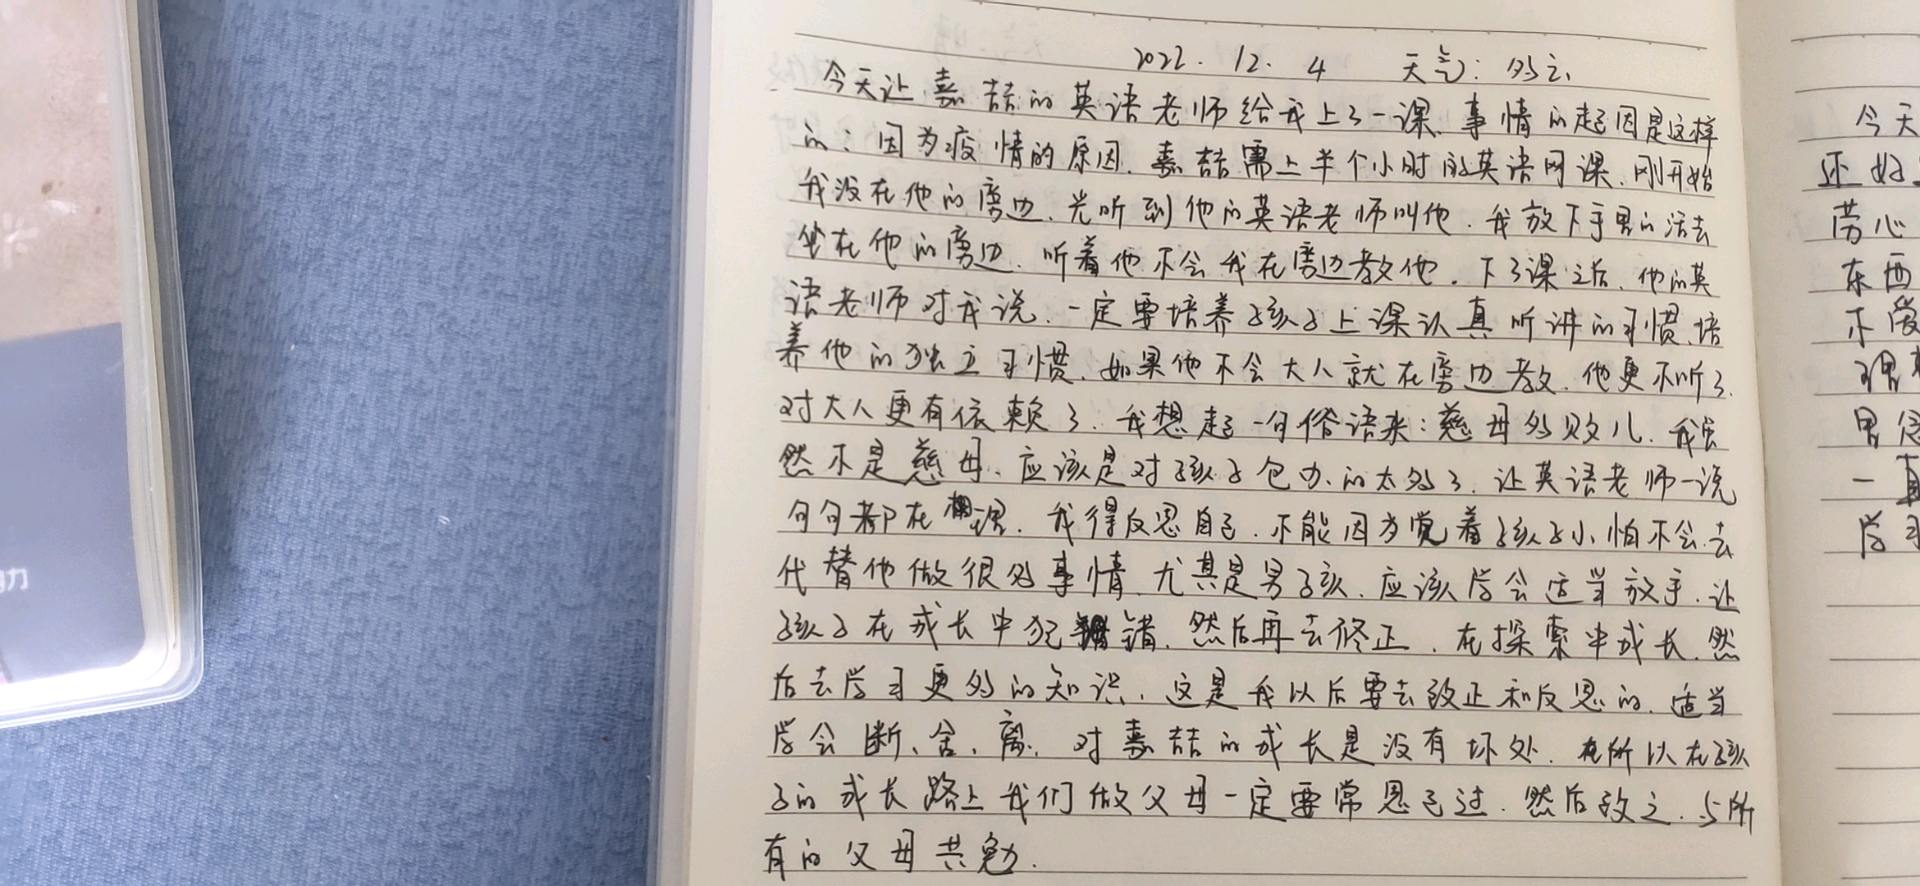 2022.12.4 天气:多云
今天让嘉喆的英语老师给我上了一课.事情的起因是这样
的:因为疫情的原因.嘉喆需上半个小时的英语网课.刚开始
我没在他的旁边.光听到他的英语老师叫他.我放下手里的活去
坐在他的旁边.听着他不会我在旁边教他.下了课之后.他的英
语老师对我说.一定要培养孩子上课认真听讲的习惯.培
养他的独立习惯.如果他不会大人就在旁边教.他更不听了.
对大人更有依赖了.我想起一句俗语来:慈母多败儿.我虽
然不是慈母.应该是对孩子包办的太多了.让英语老师一说
句句都在理.我得反思自己.不能因为觉着孩子小.怕不会去
代替他做很多事情.尤其是男孩.应该学会适当放手.让
孩子在成长中犯错.然后再去修正.在探索中成长.然
后去学习更多的知识.这是我以后要去改正和反思的.适当
学会断、舍、离.对嘉喆的成长是没有坏处.所以在孩
子的成长路上我们做父母一定要常思己过.然后改之.与所
有的父母共勉.
今天
还好
劳心
东西
不爱
一直
学习
力